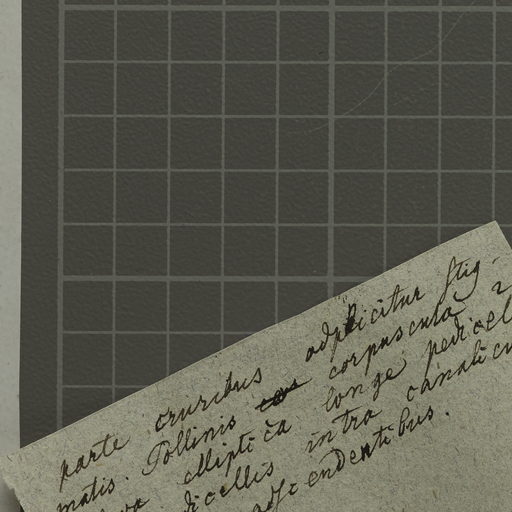 parte cruribus adplicitur stig-
matis. Pollinis corpuscula 2
elliptica longe pedicel
dicellis intra canalicu
adscendentibus.